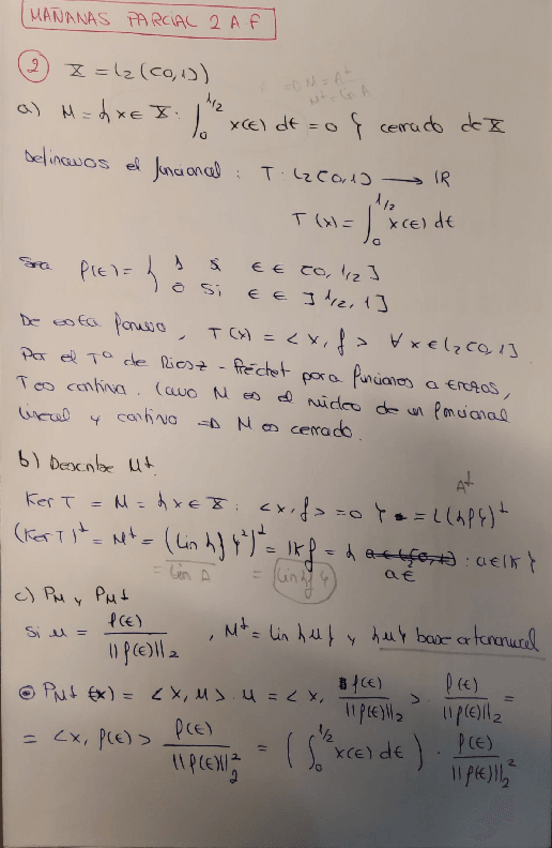 MAÑANAS PARCIAL 2 A F
② X = L₂([0,1])
=D M = A⊥
M⊥ = Lin A
a) M = { x ∈ X : ∫₀^{1/2} x(t) dt = 0 } cerrado de X
Definamos el funcional : T : L₂[0,1] → IR
T(x) = ∫₀^{1/2} x(t) dt
Sea f(t) = { 1 si t ∈ [0, 1/2]
0 si t ∈ ]1/2, 1]
De esta forma, T(x) = <x, f> ∀ x ∈ L₂[0,1]
Por el Tª de Riesz - Fréchet para funciones a trozos,
T es continua. Como M es el núcleo de un funcional
lineal y continuo =D M es cerrado.
b) Describe M⊥.
A⊥
Ker T = M = { x ∈ X : <x, f> = 0 } = ({f})⊥
(Ker T)⊥ = M⊥ = (Lin {f}²)⊥ = IK f = { a f : a ∈ IK }
= Lin A = Lin{f}
c) P_M y P_M⊥
Si u = f(t) / ||f(t)||₂ , M⊥ = Lin {u} y {u} base ortonormal
⊙ P_M⊥ (x) = <x, u> . u = <x, f(t) / ||f(t)||₂ > . f(t) / ||f(t)||₂ =
= <x, f(t)> f(t) / ||f(t)||₂² = ( ∫₀^{1/2} x(t) dt ) . f(t) / ||f(t)||₂²